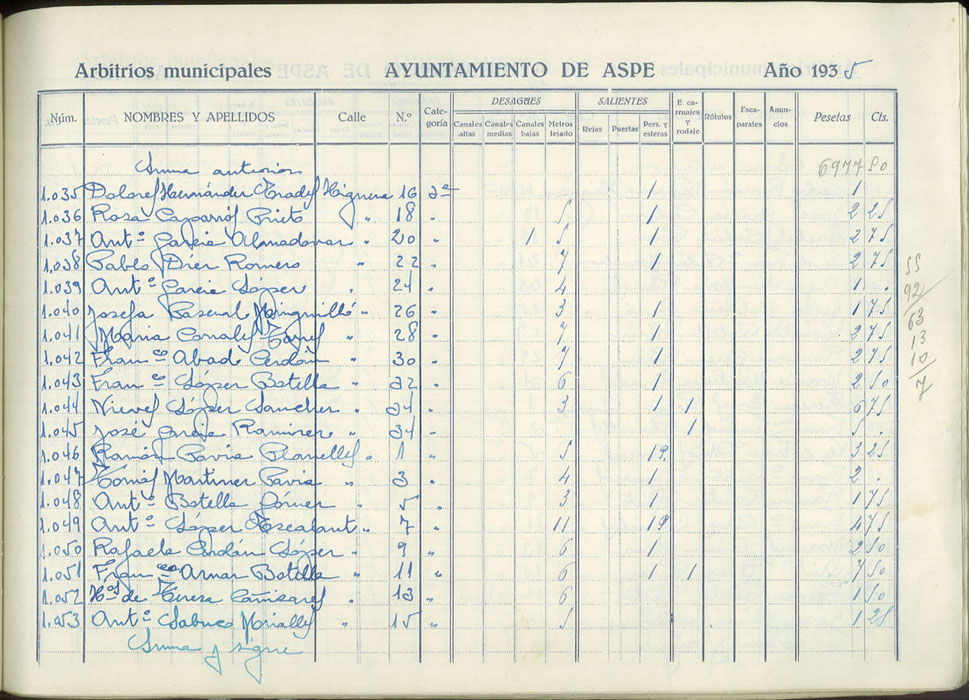 Arbitrios municipales AYUNTAMIENTO DE ASPE Año 1935
DESAGÜES SALIENTES
Núm. NOMBRES Y APELLIDOS Calle N.º Categoría Canales altas Canales medias Canales bajas Metros tejado Rejas Puertas Pers. y esteras E. carruajes y rodaje Rótulos Escaparates Anuncios Pesetas Cts.
Suma anterior 6977 50
1.035 Dolores Hernández Prades Higuera 16 2ª 1 1
1.036 Rosa Caparrós Prieto " 18 " 5 1 2 25
1.037 Antº García Almodovar " 20 " 1 5 1 2 75
1.038 Pablo Díez Romero " 22 " 7 1 2 75
1.039 Antº García López " 24 " 4 1 .
1.040 Josefa Pascual Minguilló " 26 " 3 1 1 75
1.041 María " 28 " 7 1 2 75
1.042 Franco Abad Cerdán " 30 " 7 1 2 75
1.043 Franco López Botella " 32 " 6 1 2 50
1.044 Nieves López Sánchez " 34 " 3 1 1 6 75
1.045 José García Ramírez " 34 " 1 5 .
1.046 Ramón Pavía Planelles " 1 " 5 1 3 25
1.047 Tomás Martínez Pavía " 3 " 4 1 2 .
1.048 Antº Botella Gómez " 5 " 3 1 1 75
1.049 Antº López Escalant " 7 " 11 1 4 75
1.050 Rafaela Cerdán López " 9 " 6 1 2 50
1.051 Franco Aznar Botella " 11 " 6 1 1 7 50
1.052 Hos de Teresa Cañizares " 13 " 6 1 50
1.053 Antº Sabuco Mirialles " 15 " 5 1 25
Suma y sigue
55
92
63
13
10
7